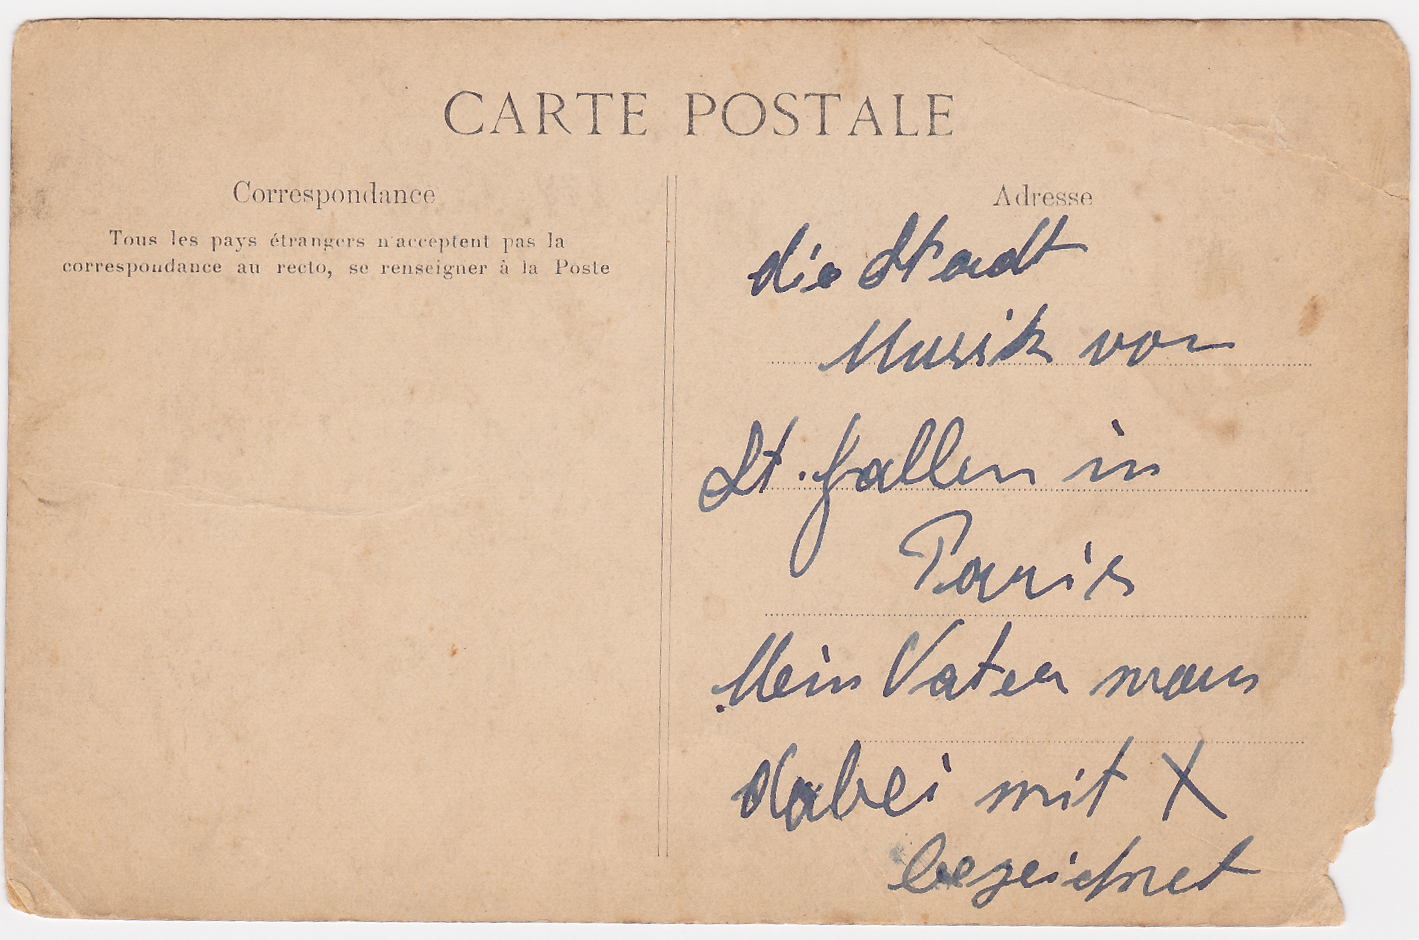 CARTE POSTALE
Correspondance
Tous les pays étrangers n'acceptent pas la
correspondance au recto, se renseigner à la Poste
Adresse
die Stadt
Musik von
St. Gallen in
Paris
Mein Vater
dabei mit X
bezeichnet